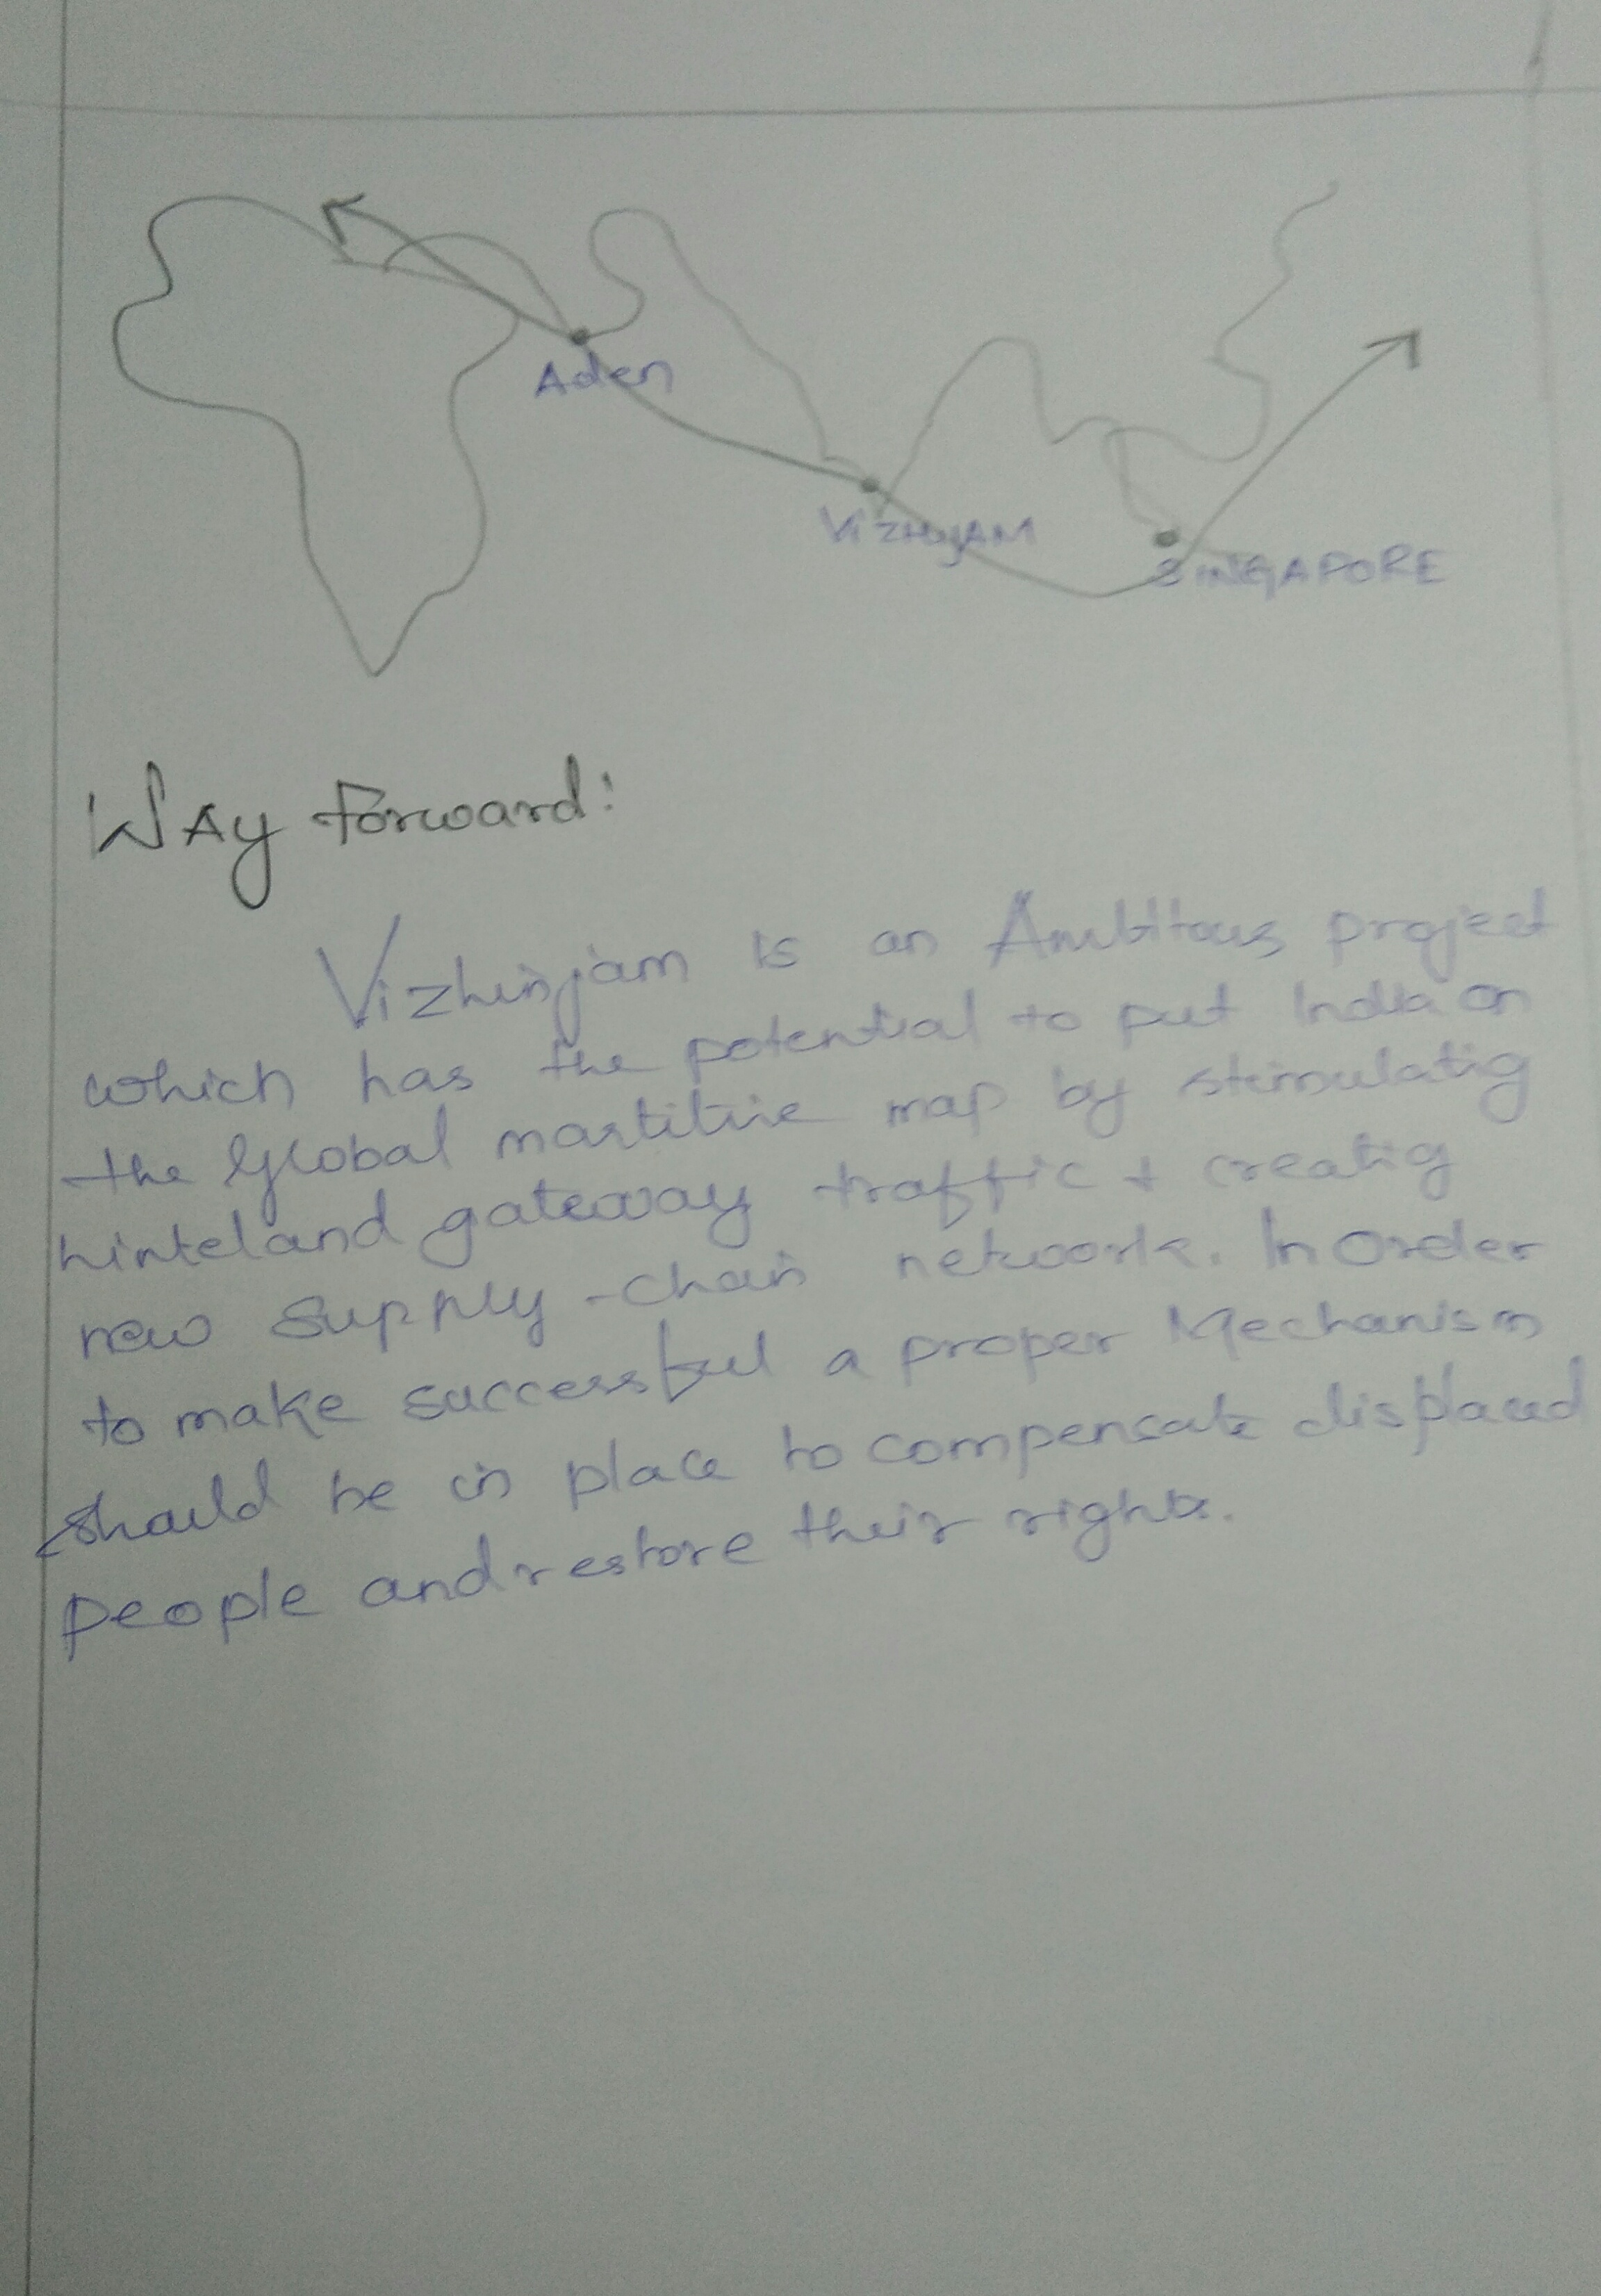 Aden
VIZHNJAM
SINGAPORE
Way Forward:
Vizhinjam is an Ambitous project
which has the potential to put India on
the Global maritime map by stimulatig
hinteland gateway traffic + creatig
new supply-chain network. In order
to make successful a proper Mechanism
should be in place to compensate displaced
people and restore their rights.